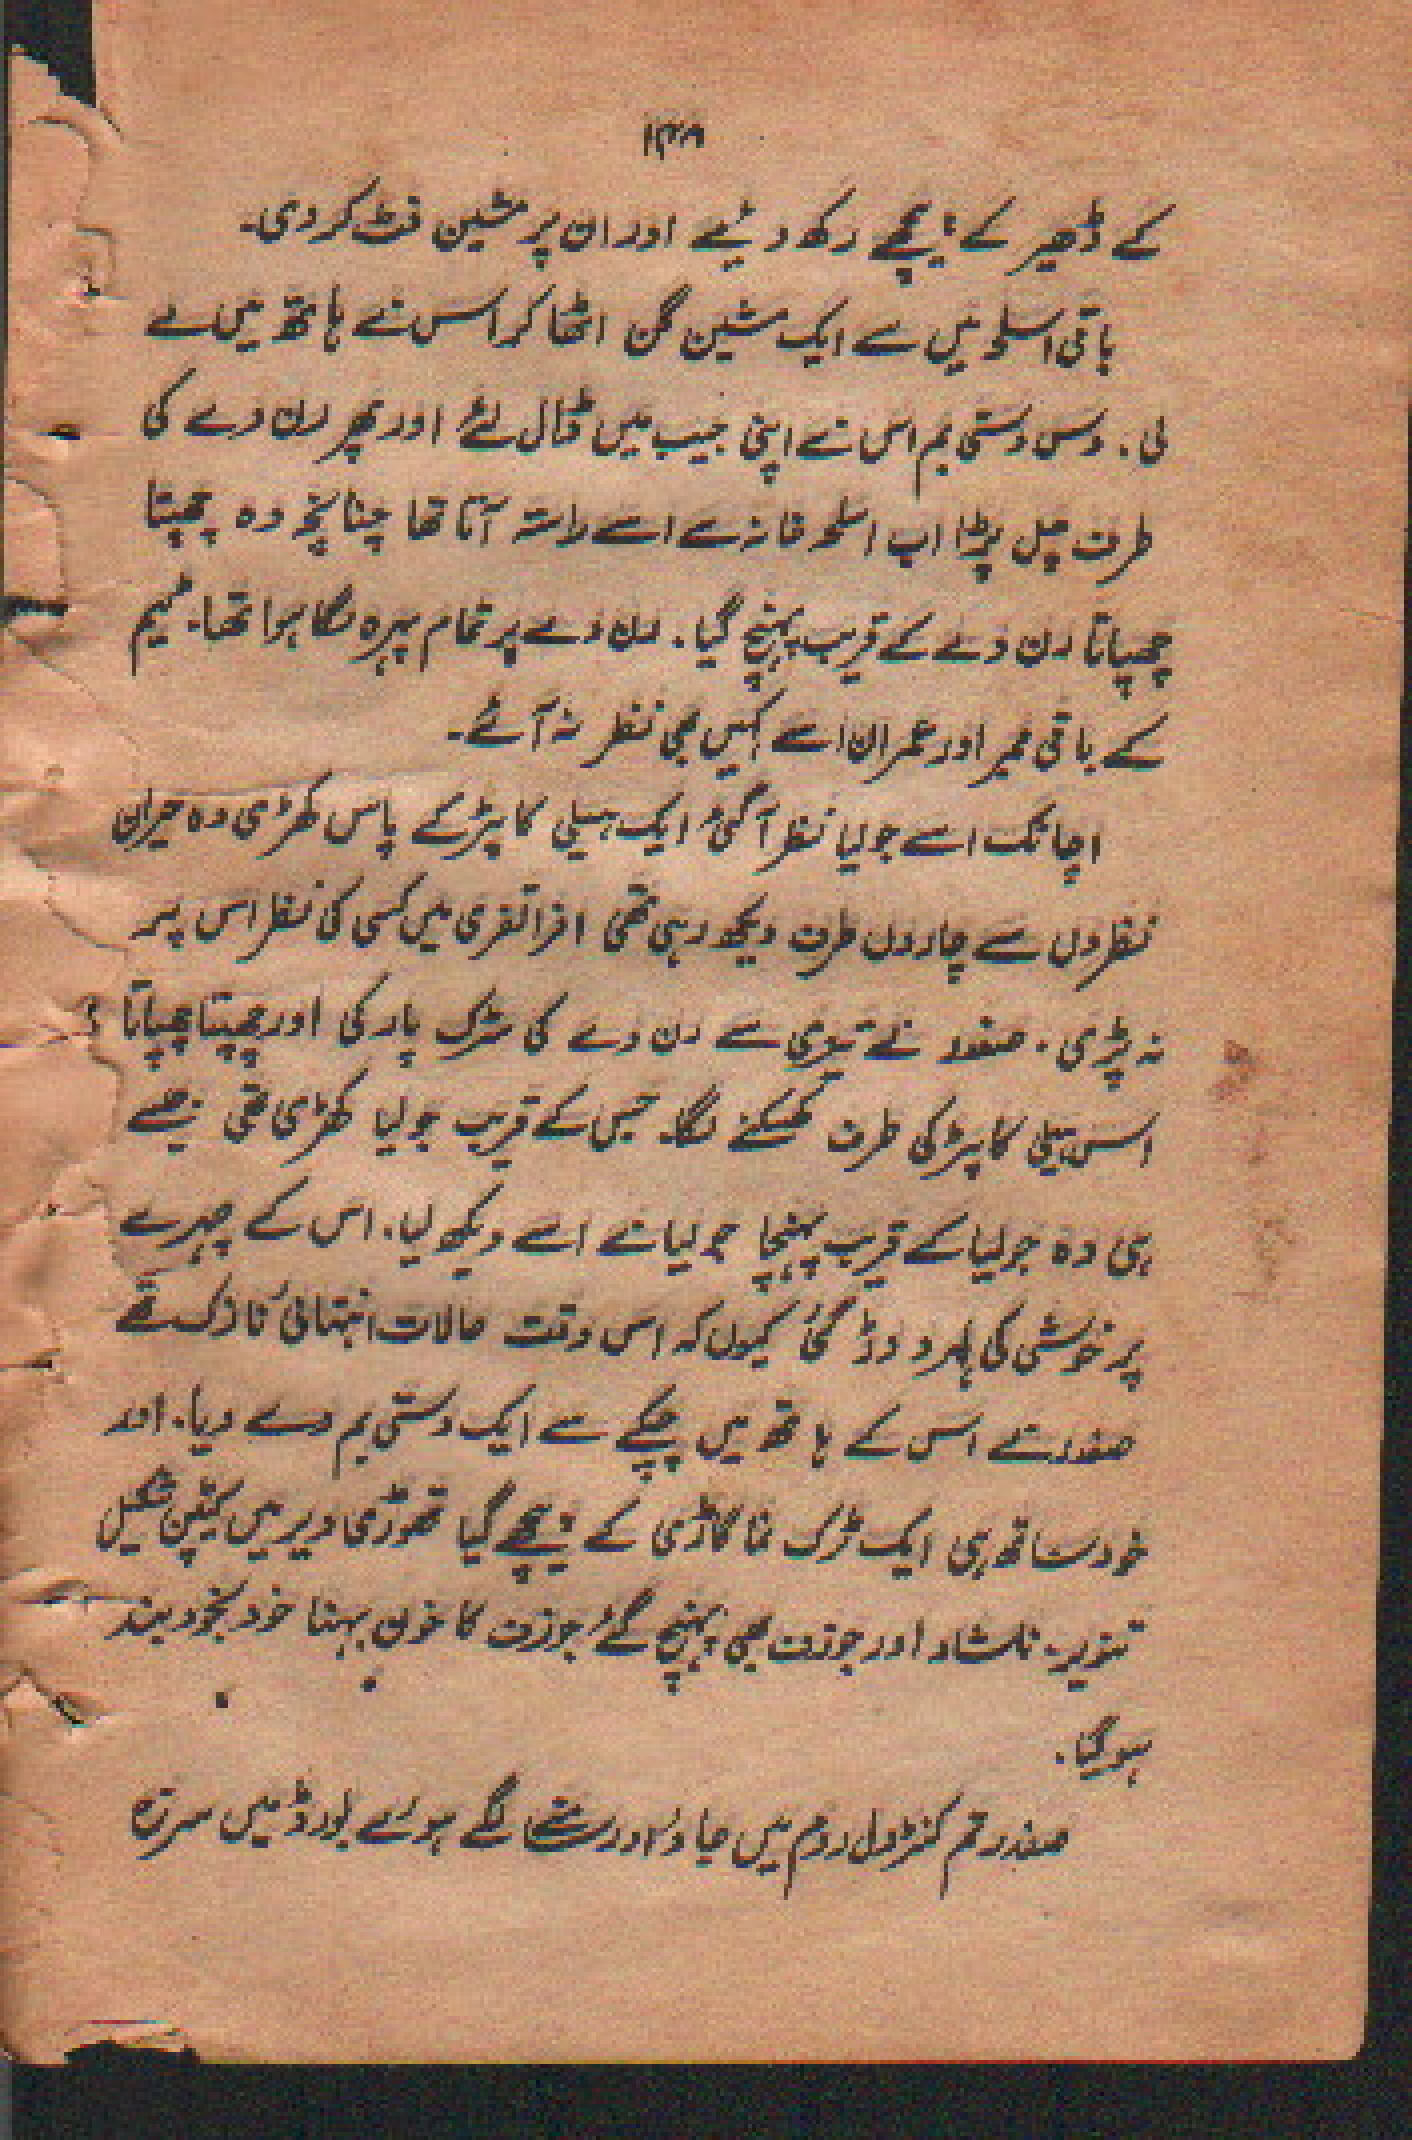 ۱۳۸
کے ڈھیر کے نیچے رکھ دیئے اور ان پر مشین فٹ کر دی۔
باقی اسلحہ میں سے ایک مشین گن اٹھا کر اس نے ہاتھ میں لے
لی۔ دس دستی بم اس نے اپنی جیب میں ڈال لئے اور پھر رن وے کی
طرف چل پڑا اب اسلحہ خانہ سے اسے راستہ آتا تھا چنانچہ وہ چھپتا
چھپاتا رن وے کے قریب پہنچ گیا۔ رن وے پر تمام پہرہ لگا ہوا تھا۔ ٹیم
کے باقی ممبر اور عمران اسے کہیں بھی نظر نہ آئے۔
اچانک اسے جولیا نظر آ گئی ایک ہیلی کاپڑ کے پاس کھڑی وہ حیران
نظروں سے چاروں طرف دیکھ رہی تھی افراتفری میں کسی کی نظر اس پر
نہ پڑی۔ صفدر نے تیزی سے رن وے کی سڑک پار کی اور چھپتا چھپاتا
اس ہیلی کاپڑ کی طرف کھسکنے لگا۔ جس کے قریب جولیا کھڑی تھی جیسے
ہی وہ جولیا کے قریب پہنچا جولیا نے اسے دیکھ لیا۔ اس کے چہرے
پر خوشی کی لہر دوڑ گئی کیوں کہ اس وقت حالات انتہائی نازک تھے
صفدر نے اس کے ہاتھ میں چپکے سے ایک دستی بم دے دیا۔ اور
خود ساتھ ہی ایک ٹرک نما گاڑی کے نیچے گیا تھوڑی دیر میں کیپٹن شکیل
تنویر۔ نلشاد اور جوزف بھی پہنچ گئے جوزف کا خون بہنا خود بخود بند
ہو گیا۔
صفدر تم کنٹرول روم میں جاؤ اور سامنے لگے ہوئے بورڈ میں سرخ